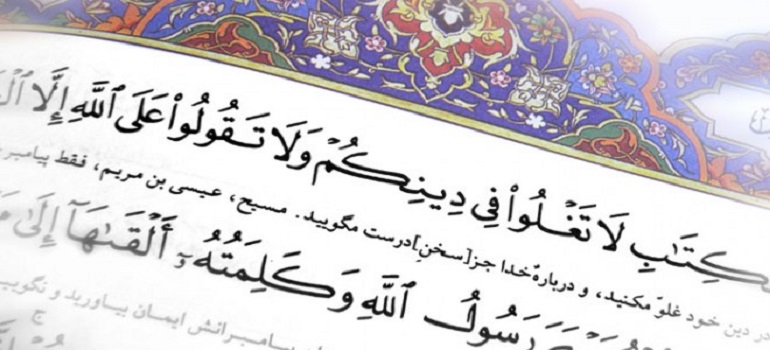 ٱلْكِتَٰبِ لَا تَغْلُوا۟ فِى دِينِكُمْ وَلَا تَقُولُوا۟ عَلَى ٱللَّهِ إِلَّا
در دین خود غلوّ مکنید، و دربارهٔ خدا جز [سخنِ] درست مگویید. مسیح، عیسی بن مریم، فقط پیامبر
رَسُولُ ٱللَّهِ وَكَلِمَتُهُۥٓ أَلْقَىٰهَآ إِلَىٰ
پیامبرانش ایمان بیاورید و نگویید
ج